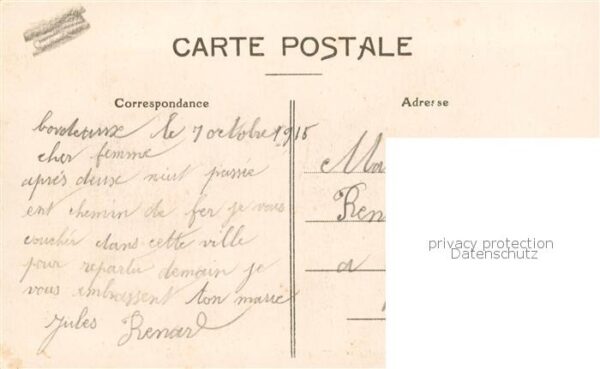 CARTE POSTALE
Correspondance
Adresse
bordeaux le 7 octobre 1915
cher femme
aprés deux nuit passée
ent chemin de fer je vous
couchér dans cette ville
pour repartir demain je
vous embrassent ton marie
Jules Renard
Ma
Ren
a
privacy protection
Datenschutz